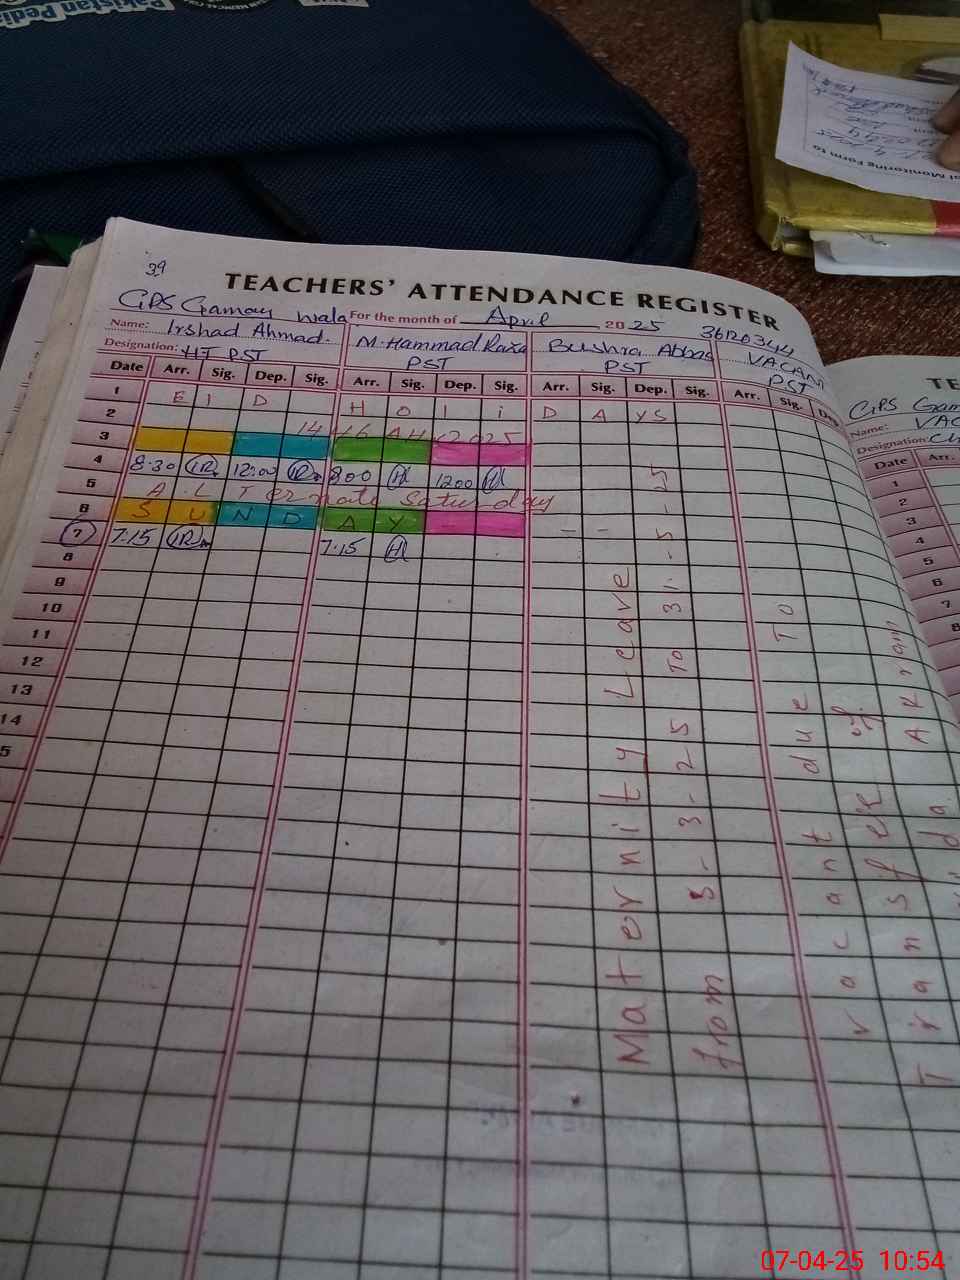 Pakistan Pedia
al Monitoring Form to
39
TEACHERS' ATTENDANCE REGISTER
GPS Gamoy wala For the month of April 2025 36120344
Name: Irshad Ahmad. M. Hammad Raza Bushra Abbas VACANT
Designation: HT PST PST PST PST
Date Arr. Sig. Dep. Sig. Arr. Sig. Dep. Sig. Arr. Sig. Dep. Sig. Arr. Sig. Dep
1 EID HOliDAYS
2
3
4 8:30 12:00 800 1200
5 ALTernate Saturday
6 SUNDAY
7 7.15 7.15
8
9
10
11
12
13
14
5
Maternity Leave
from 5-3-25 To 31-5-25
vacant due To
Transfer of
Akram
TE
GPS Gam
Name: VAC
Designation: 
Date Arr.
1
2
3
4
5
6
7
8
07-04-25 10:54